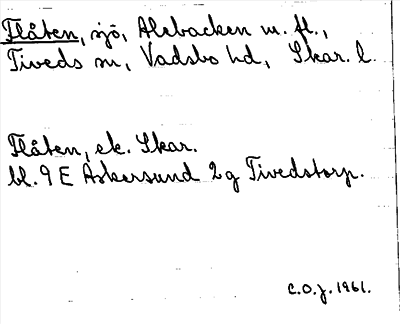 Flåten, sjö, Alebacken m. fl.,
Tiveds sn, Vadsbo hd, Skar. l.
Flåten, ek. Skar.
bl. 9 E Askersund 2 g Tivedstorp.
C.O.J. 1961.